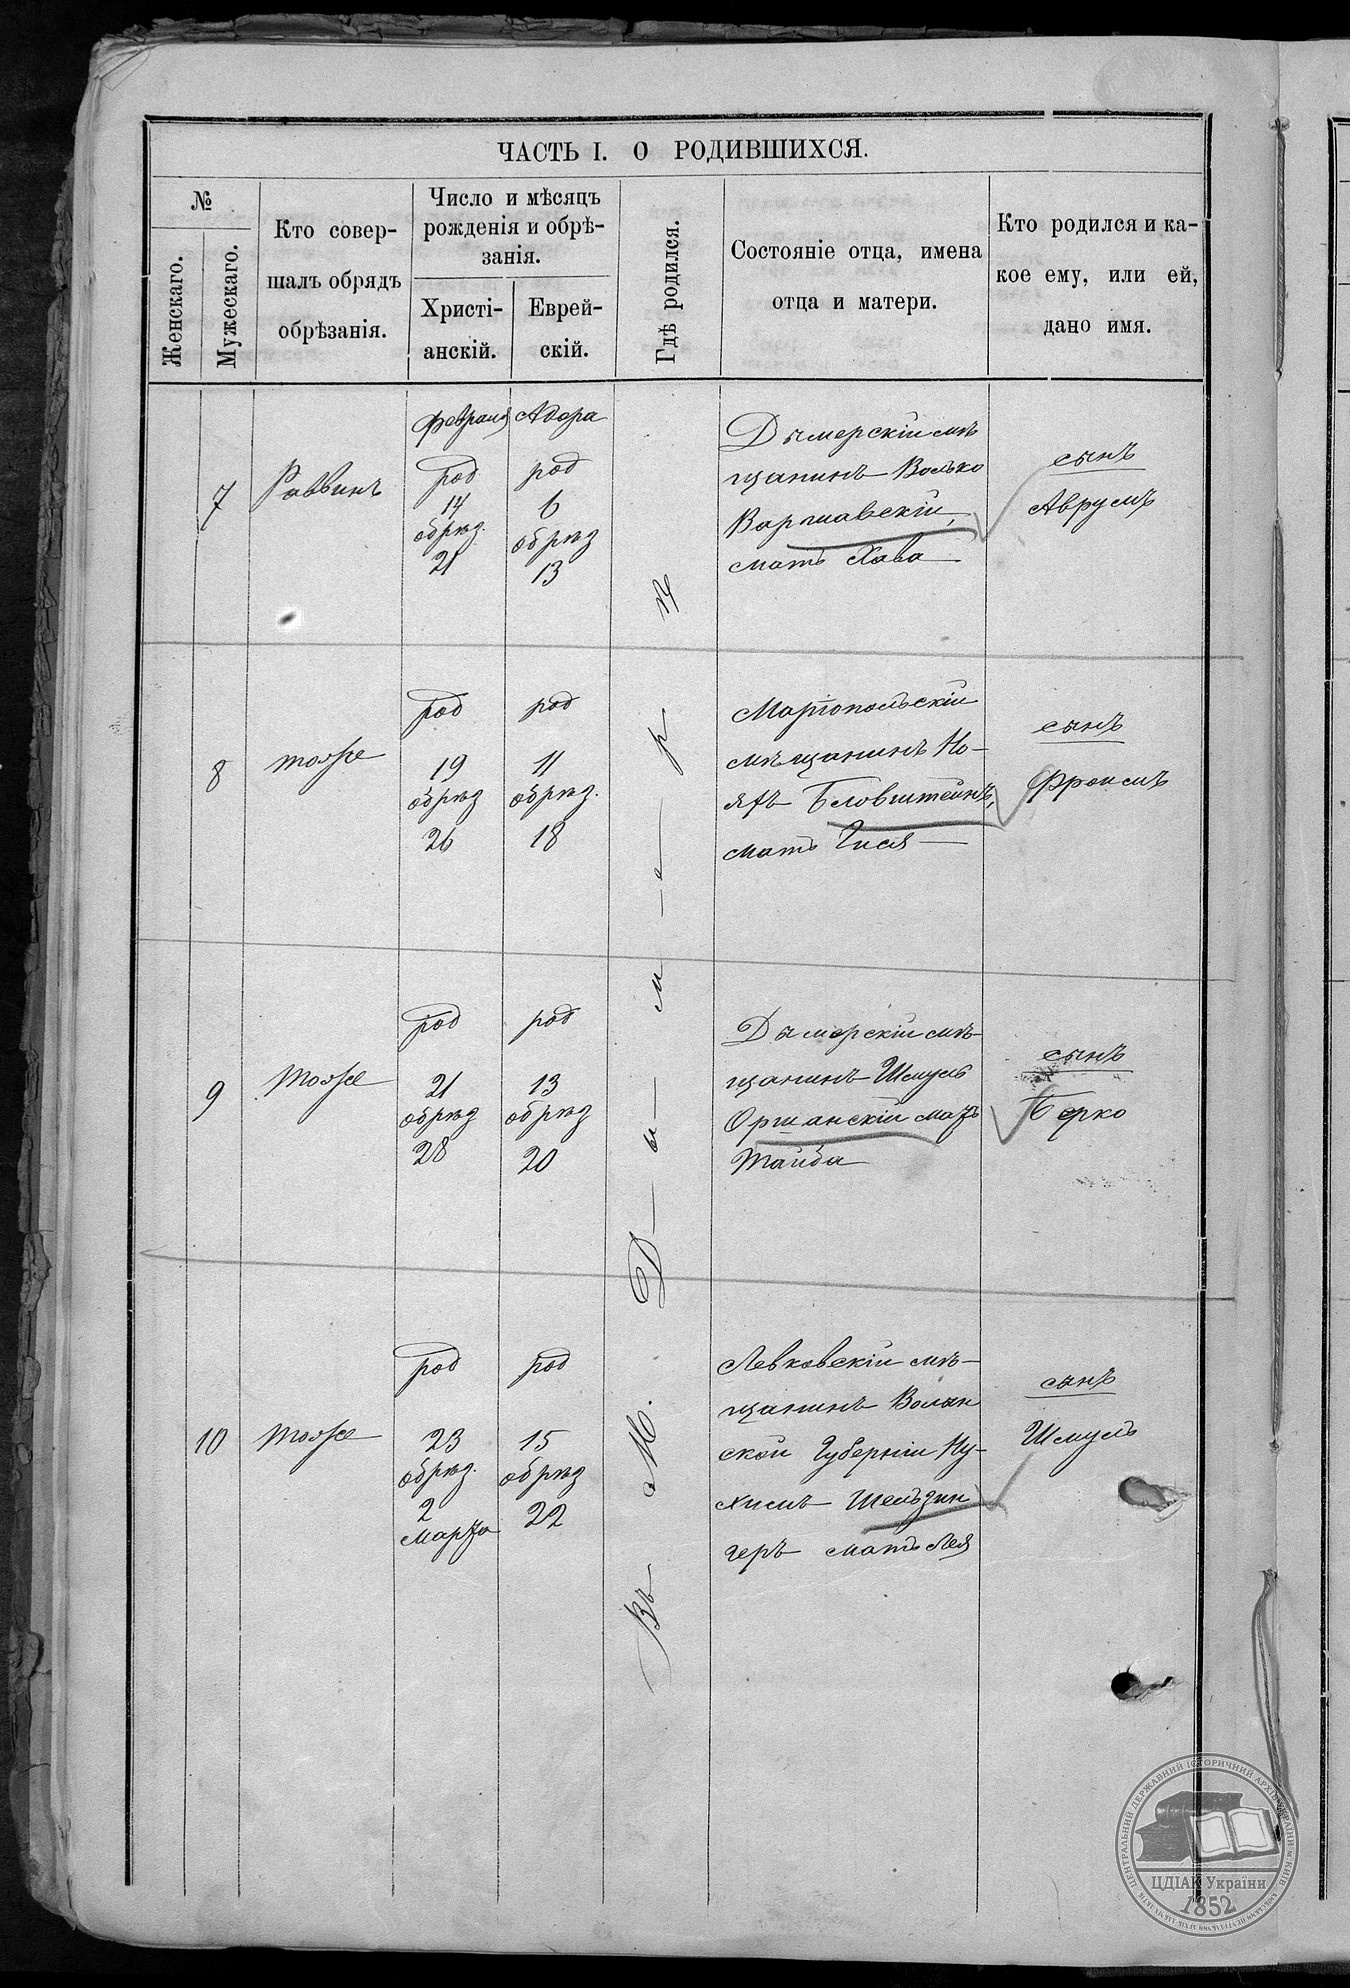 ЧАСТЬ I. О РОДИВШИХСЯ.
№
Женскаго.
Мужескаго.
Кто совер-
шалъ обрядъ
обрѣзанія.
Число и мѣсяцъ
рожденія и обрѣ-
занія.
Христі-
анскій.
Еврей-
скій.
Гдѣ родился.
Состояніе отца, имена
отца и матери.
Кто родился и ка-
кое ему, или ей,
дано имя.
7
Раввинъ
Февраля
род
14
обрѣз.
21
Адора
род
6
обрѣз
13
Въ М. Ды-ме-р-ѣ
Дымерскій мѣ
щанинъ Волько
Варшавскій,
мать Хава
сынъ
Аврумъ
8
тоже
род
19
обрѣз
26
род
11
обрѣз.
18
Маріопольскій
мѣщанинъ Но-
яхъ Бловштейнъ,
мать Гися
сынъ
Фроимъ
9
тоже
род
21
обрѣз
28
род
13
обрѣз
20
Дымерскій мѣ-
щанинъ Шмуль
Оршанскій мать
Тайба
сынъ
Берко
10
тоже
род
23
обрѣз.
2
Марта
род
15
обрѣз
22
Левковскій мѣ-
щанинъ Волын
ской Губерніи Ну-
химъ Шельзин
геръ мать Лея
сынъ
Шмуль
ЦЕНТРАЛЬНИЙ ДЕРЖАВНИЙ ІСТОРИЧНИЙ АРХІВ УКРАЇНИ м. КИЇВ
ЦДІАК України
1852